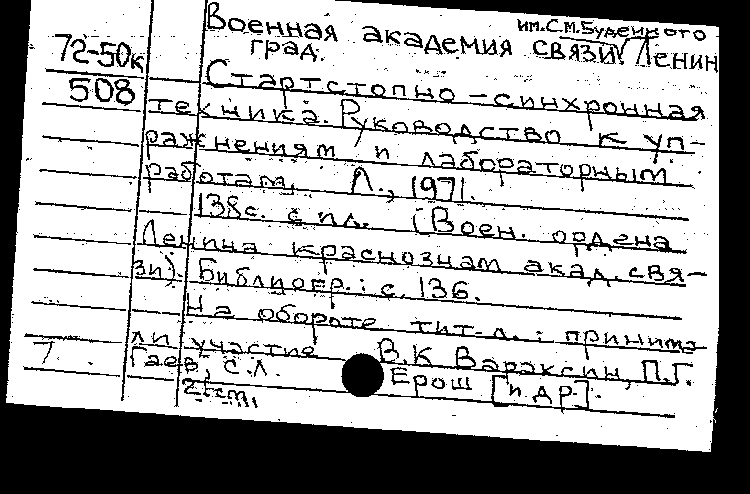 им. С.М. Буденного
Военная академия связи Ленин
град.
72-50к
508
Стартстопно-синхронная
техника. Руководство к уп-
ражнениям и лабораторным
работам. Л., 1971.
138с. с ил. (Воен. ордена
Ленина краснознам акад. свя-
зи). Библиогр.: с. 136.
На обороте тит. л.: принима
ли участие В.К Вараксин, П.Г.
Гаев, С.Л. Ерош [и др].